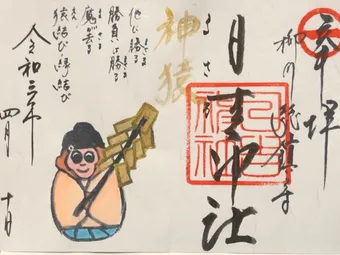 奉拝
柳川 鎮守
日吉神社
神猿
まさる
他に勝る
勝負に勝る
魔が去る
猿結び 縁結び
令和三年
四月十日